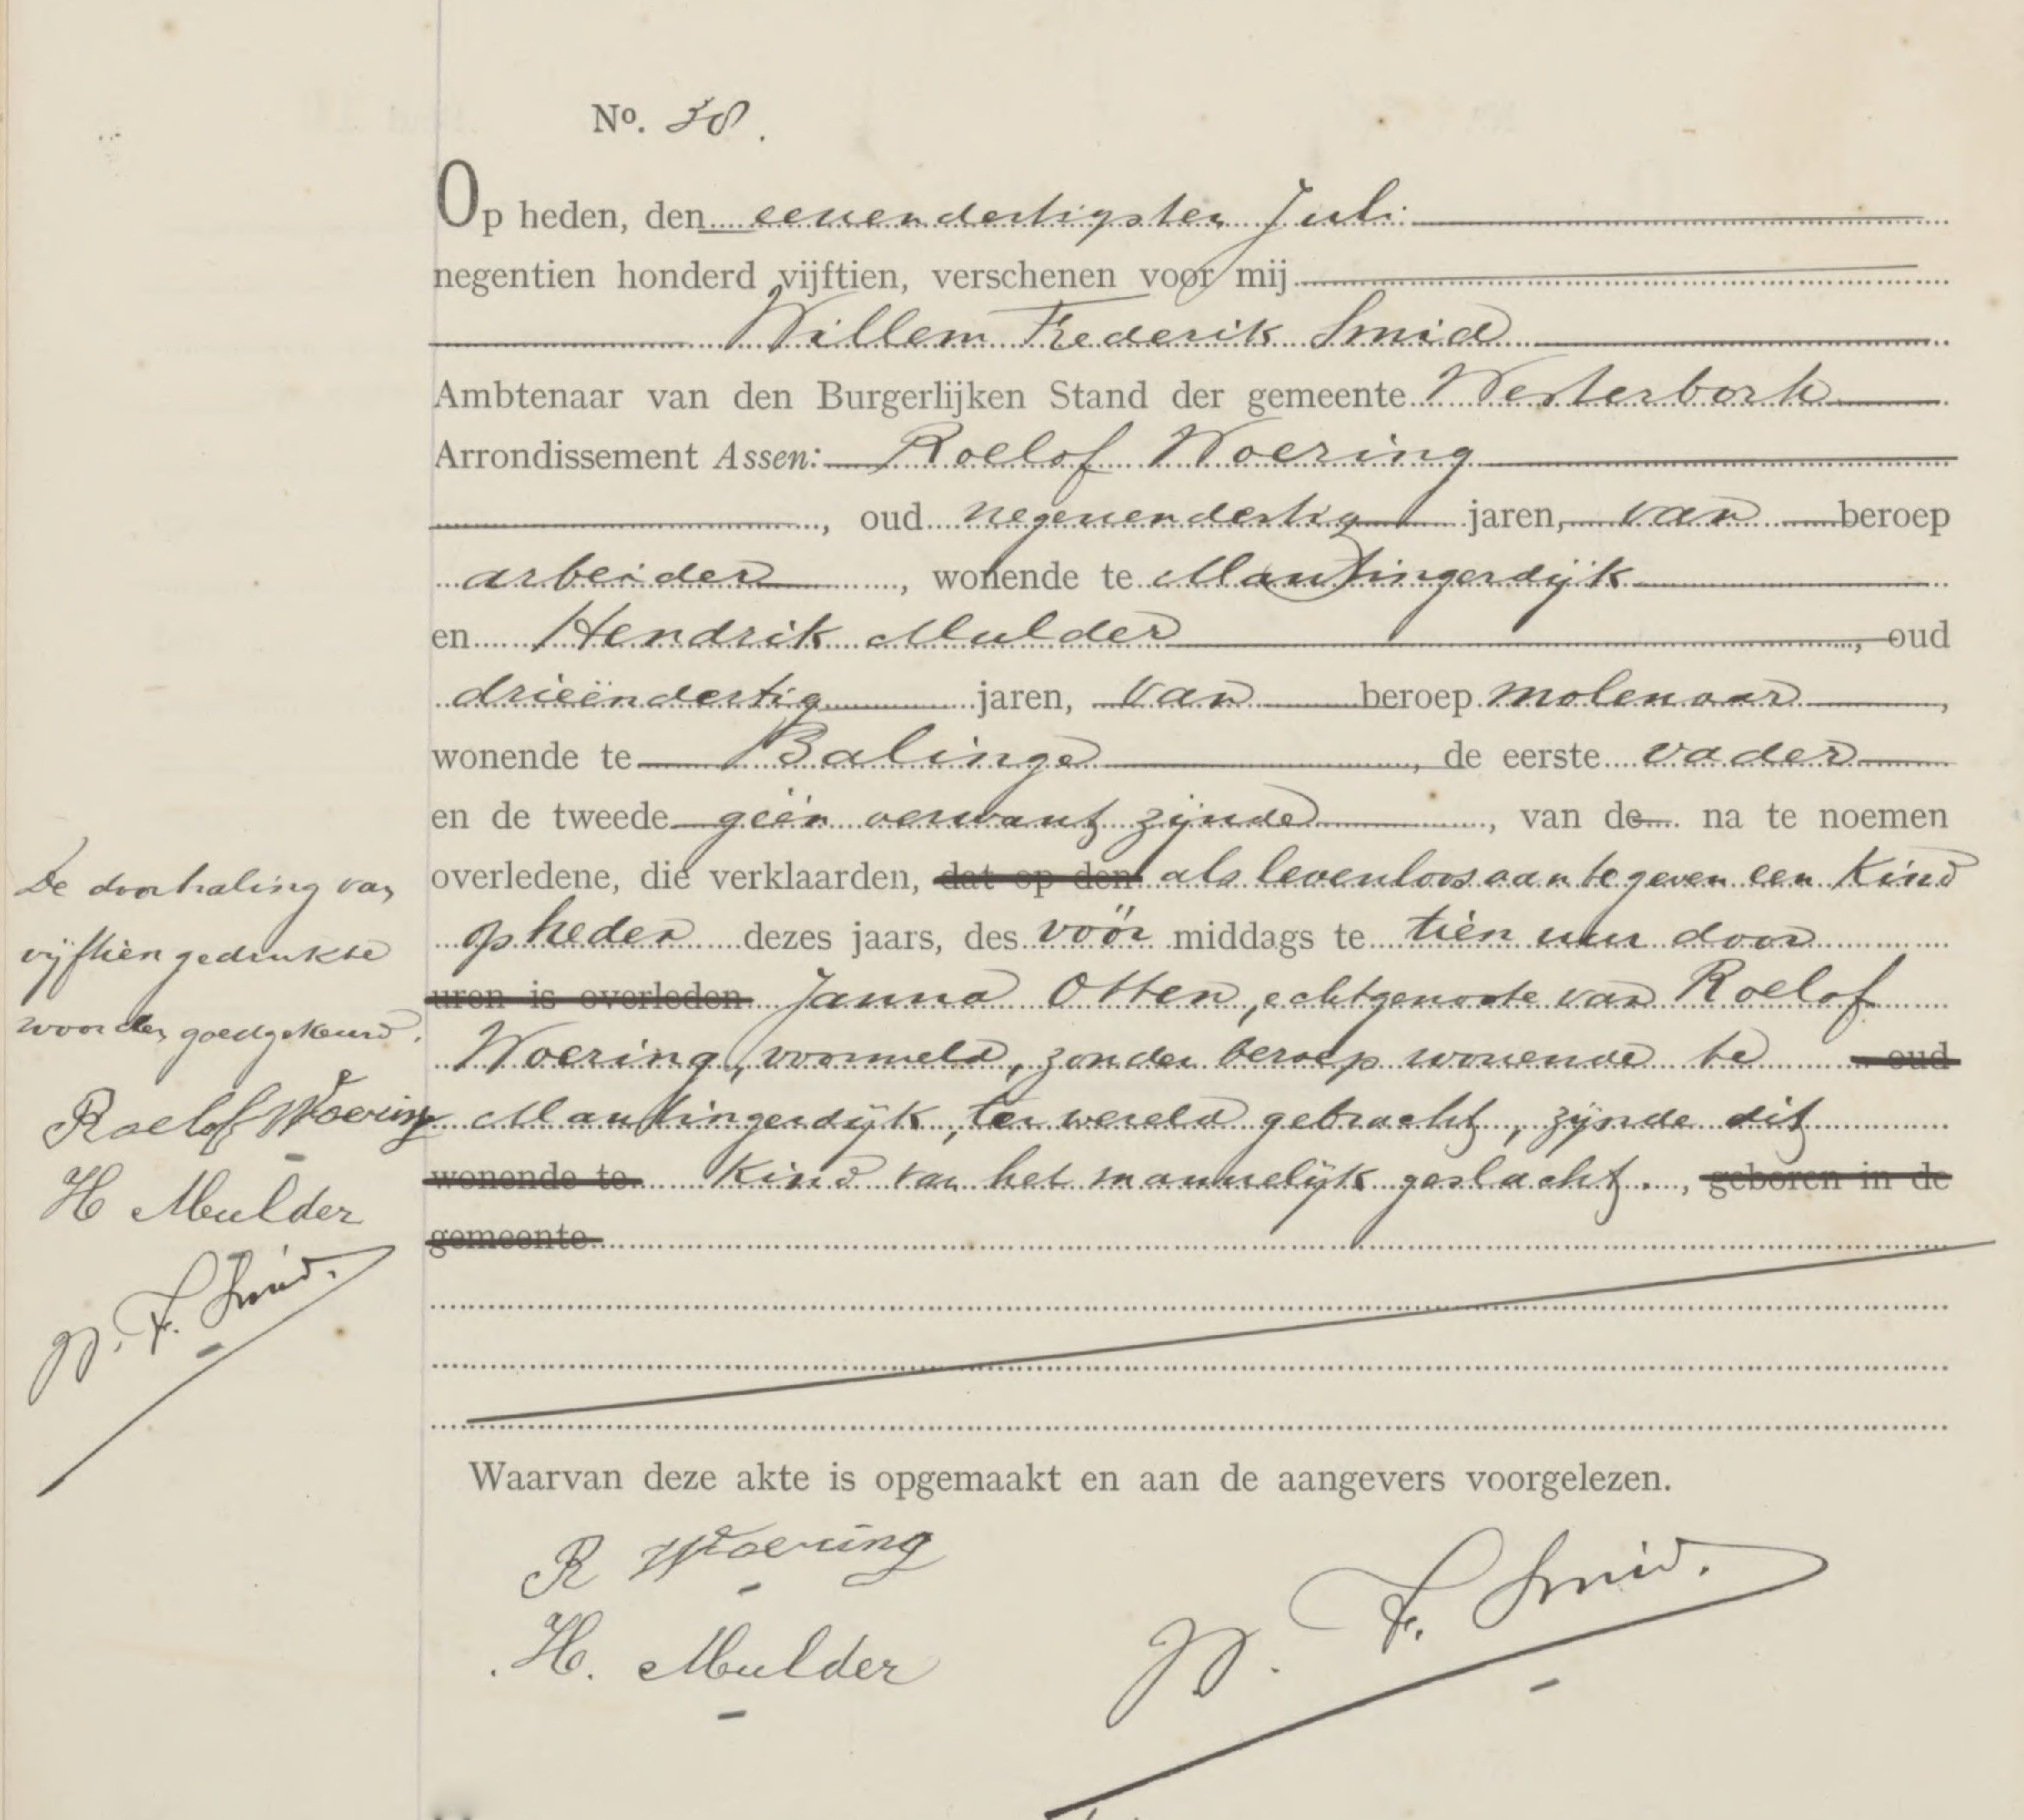 No. 38.
Op heden, den eenendertigsten Juli
negentien honderd vijftien, verschenen voor mij
Willem Frederik Smid
Ambtenaar van den Burgerlijken Stand der gemeente Westerbork
Arrondissement Assen: Roelof Woering
, oud negenendertig jaren, van beroep
arbeider, wonende te Mantingerdijk
en Hendrik Mulder, oud
drieëndertig jaren, van beroep molenaar,
wonende te Balinge, de eerste vader
en de tweede géén verwant zijnde, van de na te noemen
overledene, die verklaarden, dat op den als levenloos aan te geven een kind
op heden dezes jaars, des vóór middags te tien uur door
uren is overleden Janna Otten, echtgenoote van Roelof
Woering, voormeld, zonder beroep wonende te oud
Mantingerdijk, ter wereld gebracht, zijnde dit
wonende te kind van het mannelijk geslacht., geboren in de
gemeente
De doorhaling van
vijftien gedrukte
woorden goedgekeurd.
Roelof Woering
H Mulder
W. F. Smid.
Waarvan deze akte is opgemaakt en aan de aangevers voorgelezen.
R Woering
H. Mulder
W. F. Smid.